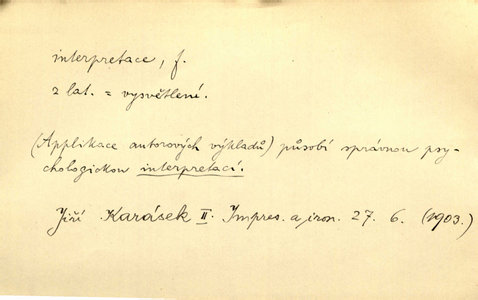 interpretace, f.
z lat. = vysvětlení.
(Applikace autorových výkladů) působí správnou psy-
chologickou interpretací.
Jiří Karásek II. Impres. a iron. 27. 6. (1903.)